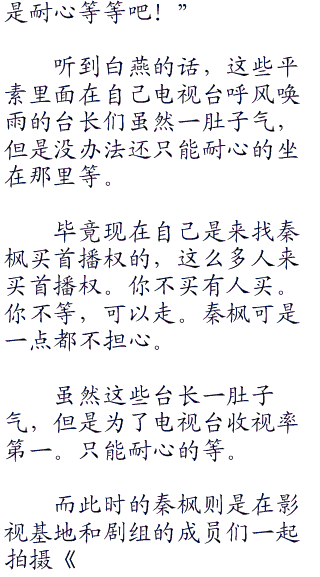 是耐心等等吧！”
听到白燕的话，这些平
素里面在自己电视台呼风唤
雨的台长们虽然一肚子气，
但是没办法还只能耐心的坐
在那里等。
毕竟现在自己是来找秦
枫买首播权的，这么多人来
买首播权。你不买有人买。
你不等，可以走。秦枫可是
一点都不担心。
虽然这些台长一肚子
气，但是为了电视台收视率
第一。只能耐心的等。
而此时的秦枫则是在影
视基地和剧组的成员们一起
拍摄《